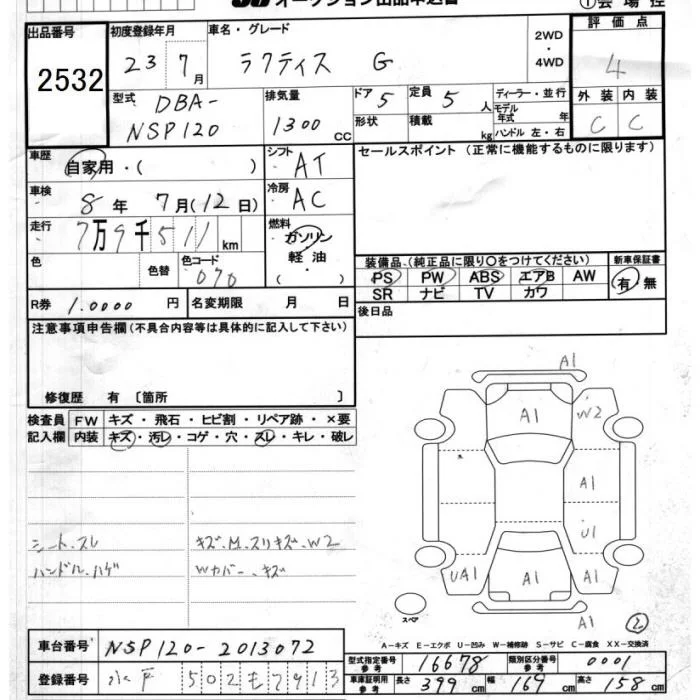 オークション出品申込書
① 会場控
出品番号 2532
初度登録年月 23 7月
車名・グレード ラクティス G
2WD・4WD
評価点 4
型式 DBA-NSP120
排気量 1300 cc
ドア 5
形状
定員 5 人
積載 kg
ディーラー・並行
モデル年式 年
ハンドル 左・右
外装 内装
C C
車歴 自家用・( )
シフト AT
セールスポイント (正常に機能するものに限ります)
車検 8年 7月(12日)
冷房 AC
走行 7万9千511 km
燃料 ガソリン 軽油 ( )
色 色替 色コード 070
装備品 (純正品に限り〇をつけてください)
新車保証書 有・無
PS PW ABS エアB AW
SR ナビ TV カワ
R券 1.0000 円
名変期限 月 日
後日品
注意事項申告欄(不具合内容等は具体的に記入して下さい)
修復歴 有 〔箇所 〕
検査員記入欄
FW キズ・飛石・ヒビ割・リペア跡・×要
内装 キズ・汚レ・コゲ・穴・スレ・キレ・破レ
シート.スレ
ハンドル.ハゲ
キズ.M.スリキズ.W2
Wカバー.キズ
A1
A1
W2
A1
U1
UA1
A1
A1
A1
スペア
②
A-キズ E-エクボ U-凹み W-補修跡 S-サビ C-腐食 XX-交換済
車台番号 NSP120-2013072
登録番号 水戸 502 も 7913
型式指定番号 参考 16678
類別区分番号 参考 0001
車庫証明用 参考 長さ 399 cm 幅 169 cm 高さ 158 cm